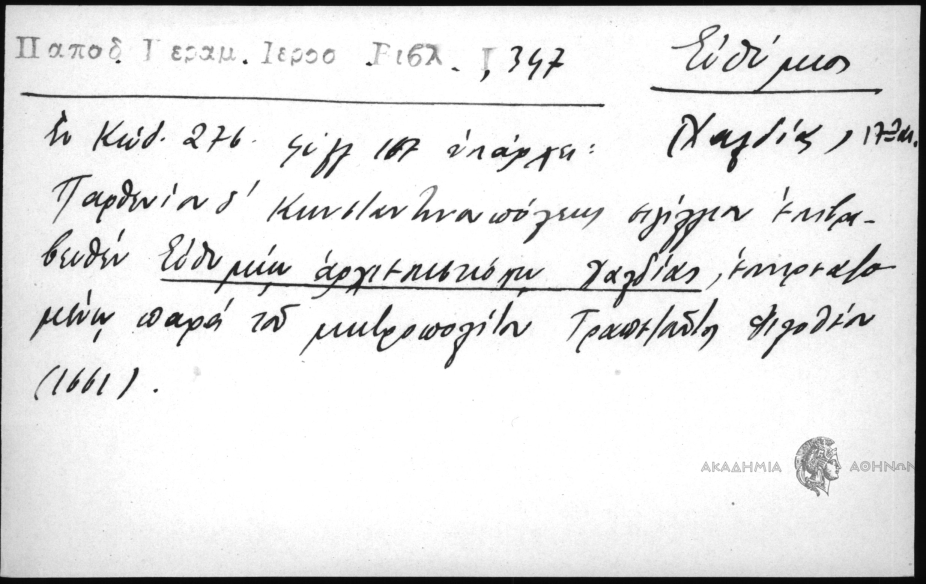 Παποδ. Κεραμ. Ιερσο. Βιβλ. Ι, 347
Εὐθύμιος
Ἐν Κώδ. 276. φύλλ 167 ὑπάρχει:
(Χαλδίας, 17ου αι.
Παρθενίου δ' Κωνσταντινουπόλεως σιγίλλιον ἐπιβρα-
βευθέν Εὐθυμίῳ ἀρχιεπισκόπῳ Χαλδίας, ἐπηρεαζο
μένῳ παρά τοῦ μητροπολίτου Τραπεζοῦντος Φιλοθέου
(1661).
ΑΚΑΔΗΜΙΑ ΑΘΗΝΩΝ